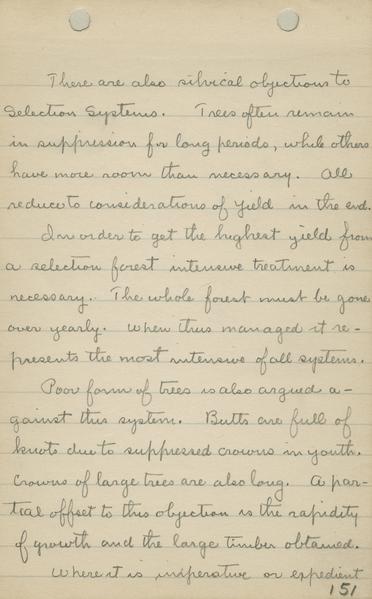 There are also silvical objections to
Selection Systems. Trees often remain
in suppression for long periods, while others
have more room than necessary. All
reduce to considerations of Yield in the end.
In order to get the highest yield from
a selection forest intensive treatment is
necessary. The whole forest must be gone
over yearly. When thus managed it re-
presents the most intensive of all systems.
Poor form of trees is also argued a-
gainst this system. Butts are full of
knots due to suppressed crowns in youth.
Crowns of large trees are also long. A par-
tial offset to this objection is the rapidity
of growth and the large timber obtained.
Where it is imperative or expedient
151